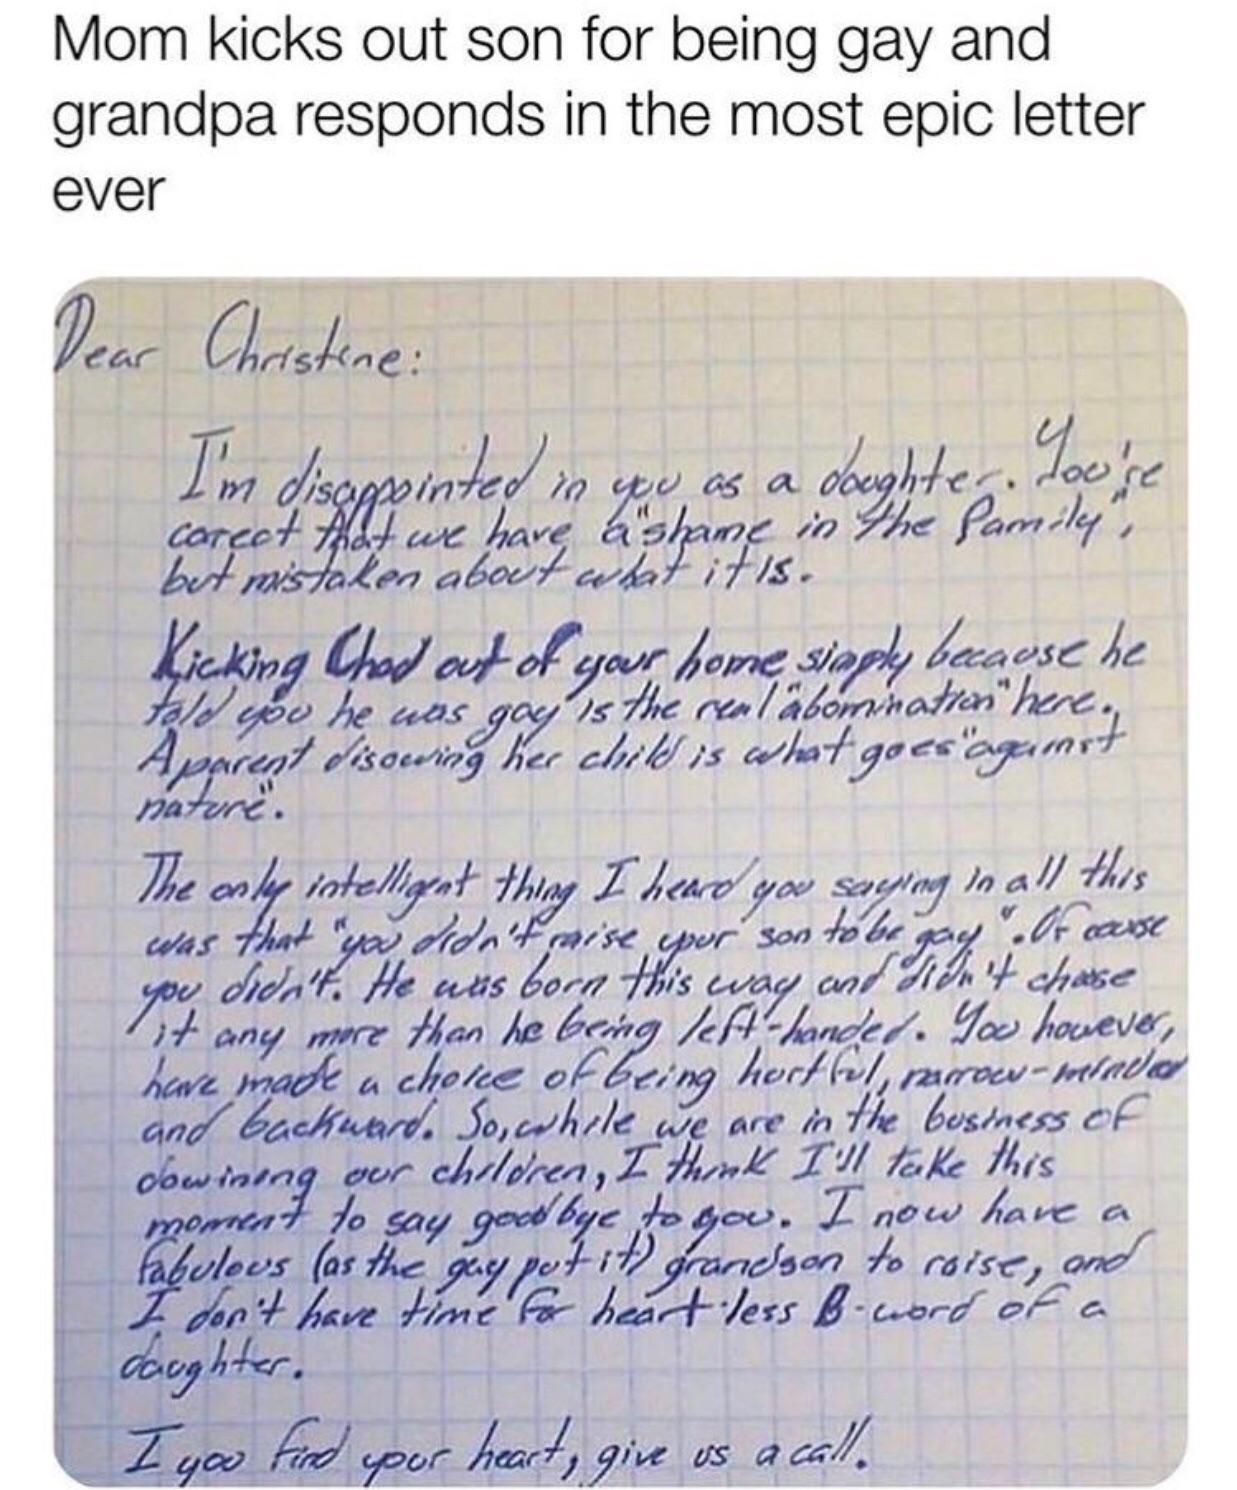 Mom kicks out son for being gay and
grandpa responds in the most epic letter
ever
Dear Christine:
I'm disappointed in you as a daughter. You're
corect that we have a "shame in the family",
but mistaken about what it is.
Kicking Chad out of your home simply because he
told you he was gay is the real "abomination" here.
A parent disowing her child is what goes "against
nature".
The only intelligent thing I heard you saying in all this
was that "you didn't raise your son to be gay". Of couse
you didn't. He was born this way and didn't choose
it any more than he being left-handed. You however,
have made a choice of being hurtful, narrow-minded
and backward. So, while we are in the business of
dowining our children, I think I'll take this
moment to say goodbye to you. I now have a
fabulous (as the gay put it) grandson to raise, and
I don't have time for heart-less B-word of a
daughter.
I you find your heart, give us a call.